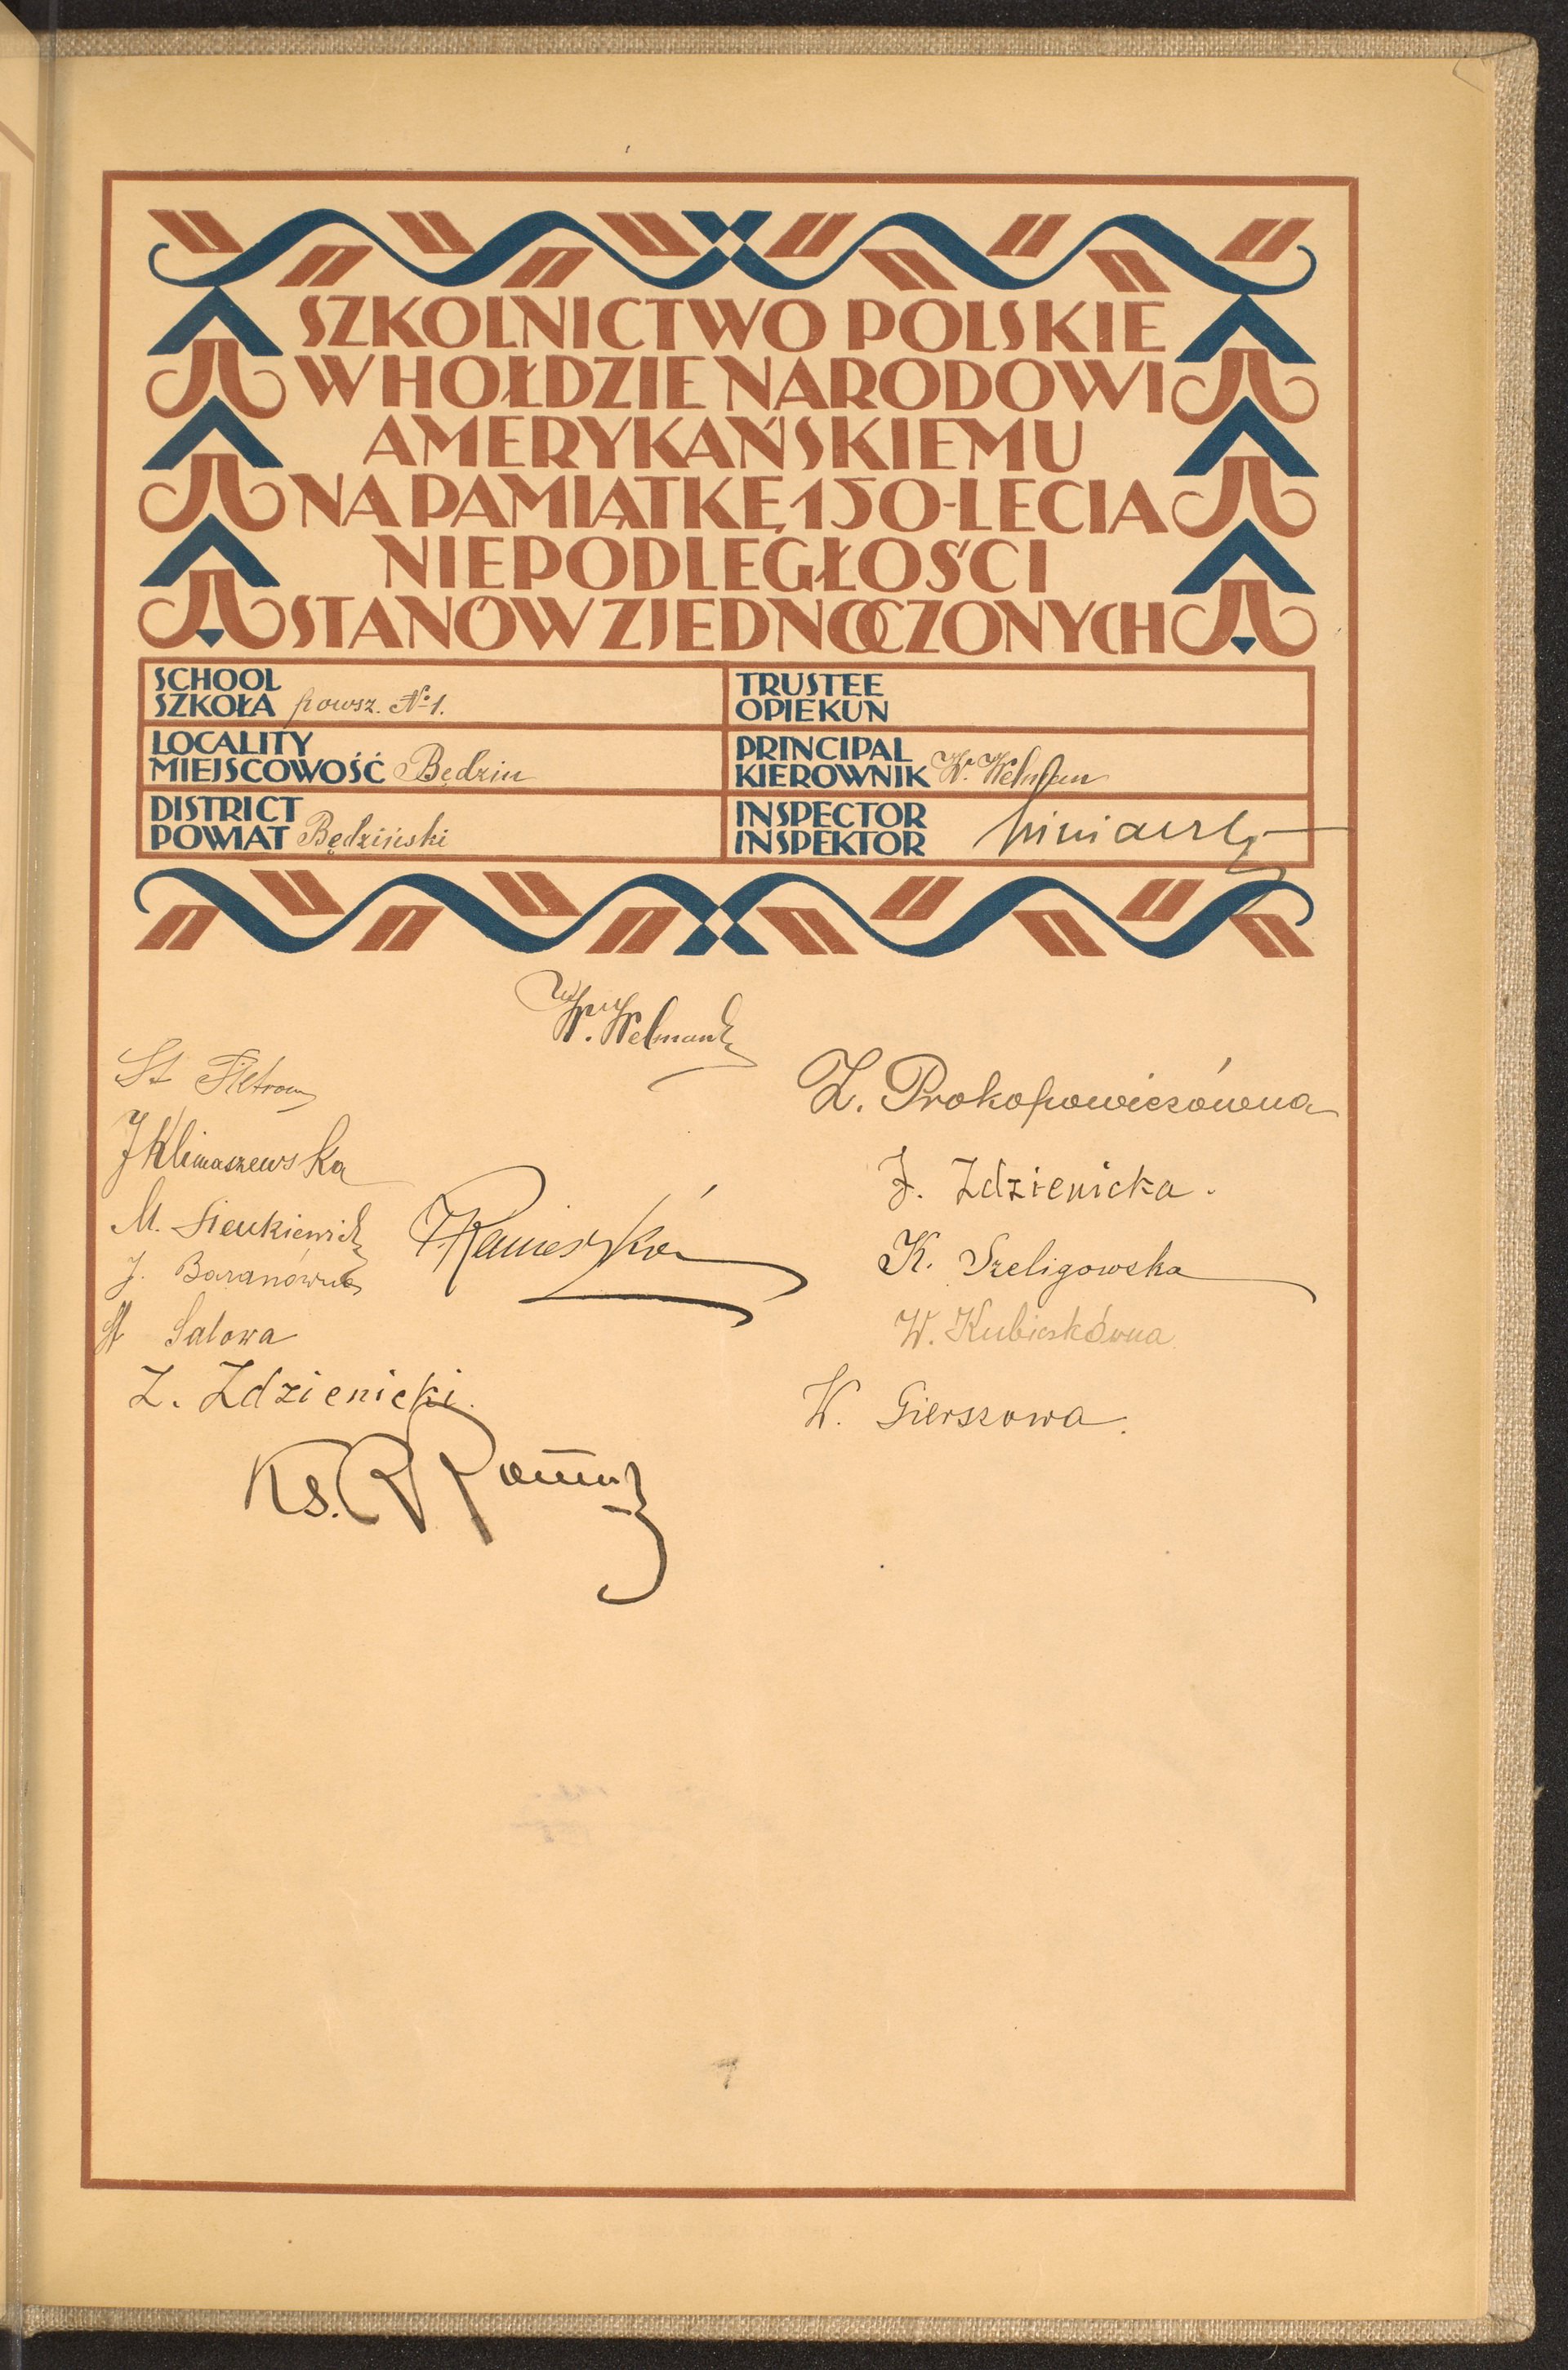 SZKOLNICTWO POLSKIE
W HOŁDZIE NARODOWI
AMERYKAŃSKIEMU
NA PAMIĄTKĘ 150-LECIA
NIEPODLEGŁOŚCI
STANÓW ZJEDNOCZONYCH
SCHOOL
SZKOŁA powsz. № 1.
TRUSTEE
OPIEKUN
LOCALITY
MIEJSCOWOŚĆ Będzin
PRINCIPAL
KIEROWNIK W. Welman
DISTRICT
POWIAT Będziński
INSPECTOR
INSPEKTOR
W. Welman
St
J Klimaszewska
M. Sienkiewicz
J. Baranówna
St Salowa
Z. Zdzienicki.
Ks. R
Z. Prokopowiczówna
J. Zdzienicka.
K. Szeligowska
W. Kubiczkówna
W. Gierszowa.